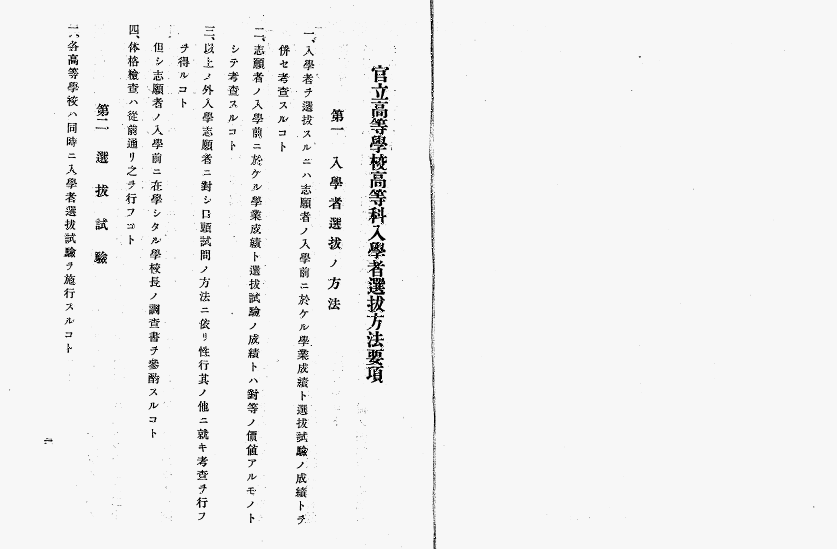 官立高等學校高等科入學者選拔方法要項
第一　入學者選拔ノ方法
一、入學者ヲ選拔スルニハ志願者ノ入學前ニ於ケル學業成績ト選拔試驗ノ成績トヲ
併セ考査スルコト
二、志願者ノ入學前ニ於ケル學業成績ト選拔試驗ノ成績トハ對等ノ價値アルモノト
シテ考査スルコト
三、以上ノ外入學志願者ニ對シ口頭試問ノ方法ニ依リ性行其ノ他ニ就キ考査ヲ行フ
ヲ得ルコト
但シ志願者ノ入學前ニ在學シタル學校長ノ調査書ヲ參酌スルコト
四、体格檢査ハ從前通リ之ヲ行フコト
第二　選拔試驗
一、各高等學校ハ同時ニ入學者選拔試驗ヲ施行スルコト